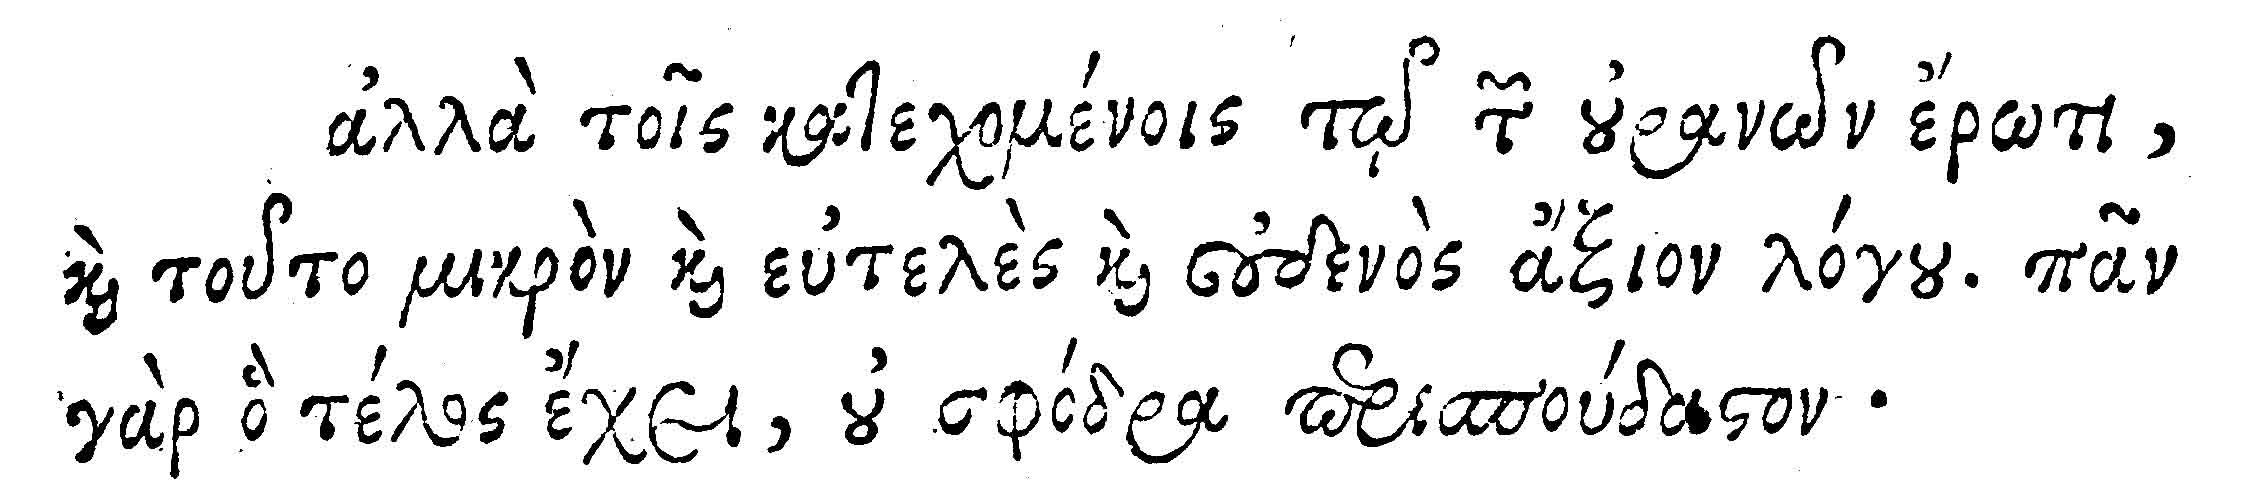 ἀλλὰ τοῖς κατεχομένοις τῷ τῶν οὐρανῶν ἔρωτι,
καὶ τοῦτο μικρὸν καὶ εὐτελὲς καὶ οὐδενὸς ἄξιον λόγου. πᾶν
γὰρ ὃ τέλος ἔχει, οὐ σφόδρα περισπούδαστον.